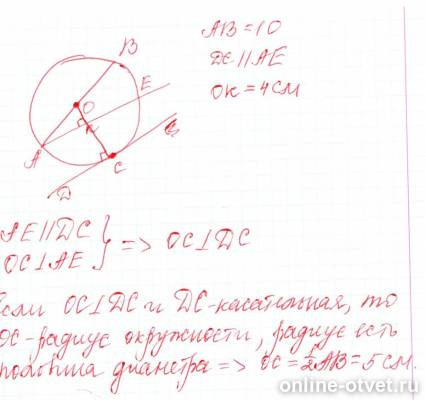 AB=10
DC || AE
OK=4см
B
E
O
K
A
C
D
AE||DC
OC⊥AE } => OC⊥DC
если OC⊥DC и DC-касательная, то
OC-радиус окружности, радиус есть
половина диаметра => OC=½AB=5см.
online-otvet.ru